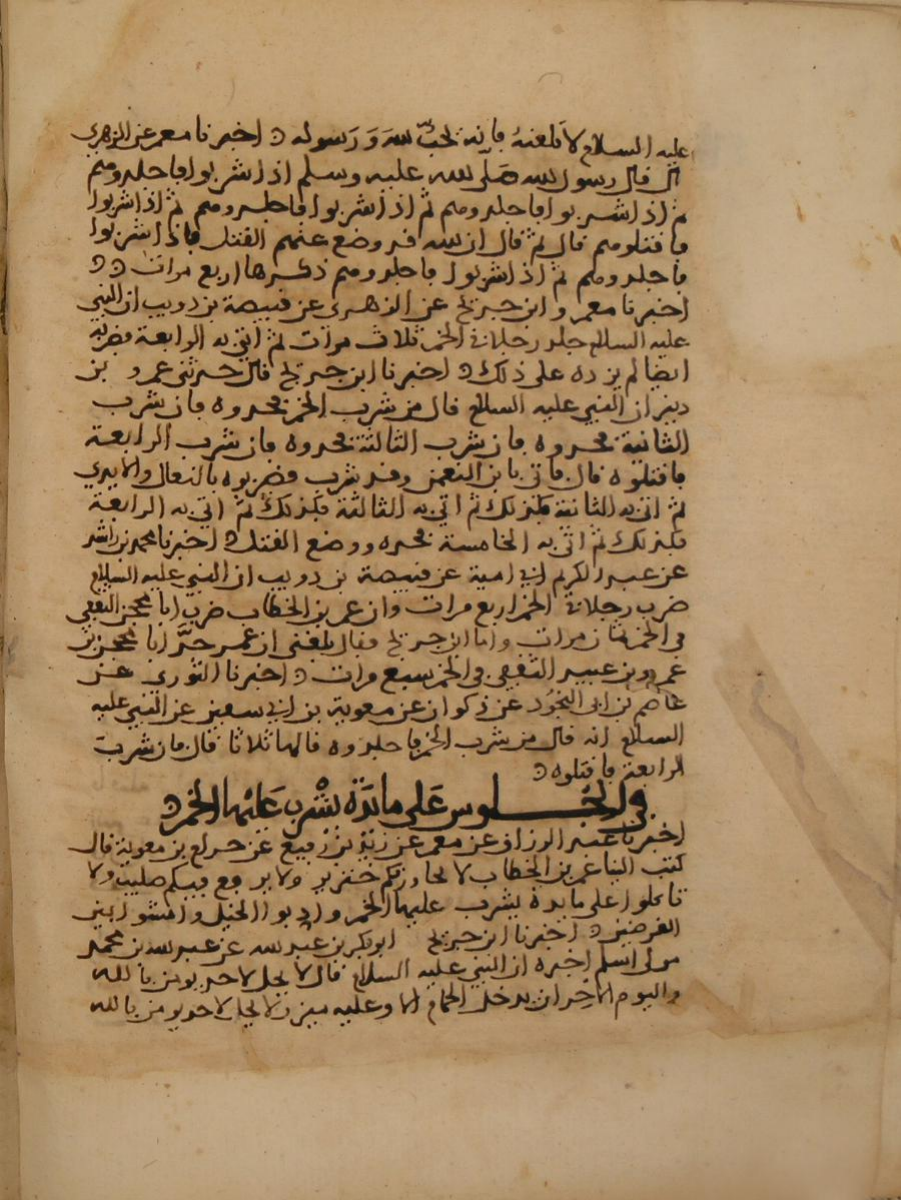 عليه السلام لا تلعنه فانه يحب الله ورسوله ه اخبرنا معمر عن الزهري
ان قال رسول الله صلى الله عليه وسلم اذا شربوا فاجلدوهم
ثم اذا شربوا فاجلدوهم ثم اذا شربوا فاجلدوهم ثم اذا شربوا
فاقتلوهم قال ثم قال ان الله قد وضع عنهم القتل فاذا شربوا
فاجلدوهم ثم اذا شربوا فاجلدوهم ذكرها اربع مرات ه ه
اخبرنا معمر وابن جريج عن الزهري عن قبيصة بن ذويب ان النبي
عليه السلام جلد رجلا في الخمر ثلاث مرات ثم اتي به الرابعة فضربه
ايضا لم يزده على ذلك ه اخبرنا ابن جريج قال حدثني عمرو بن
دينر ان النبي عليه السلام قال من شرب الخمر فحدوه فان شرب
الثانية فحدوه فان شرب الثالثة فحدوه فان شرب الرابعة
فاقتلوه قال فاتي بابن النعمن وقد شرب فضربوه بالنعال والايدي
ثم اتي به الثانية فكذلك ثم اتي به الثالثة فكذلك ثم اتي به الرابعة
فكذلك ثم اتي به الخامسة فحده ووضع القتل ه اخبرنا محمد بن راشد
عن عبد الكريم ابي امية عن قبيصة بن ذويب ان النبي عليه السلام
ضرب رجلا في الخمر اربع مرات وان عمر بن الخطاب ضرب ابا محجن الثقفي
في الخمر ثمان مرات واما ابن جريج فقال بلغني ان عمر حد ابا محجن بن
عمرو بن عبيد الثقفي في الخمر سبع مرات ه اخبرنا الثوري عن
عاصم بن ابي النجود عن ذكوان عن معوية بن ابي سفين عن النبي عليه
السلام انه قال من شرب الخمر فاجلدوه قالها ثلاثا قال فان شرب
الرابعة فاقتلوه ه
في الجلوس على مائدة يشرب عليها الخمر ه
اخبرنا عبد الرزاق عن معمر عن زيد بن رفيع عن حرام بن معوية قال
كتب الينا عمر بن الخطاب لا يجاورنكم خنزير ولا يرفع فيكم صليب ولا
تاكلوا على مايدة يشرب عليها الخمر وادبوا الخيل وامشوا بين
الغرضين ه اخبرنا ابن جريج ابو بكر بن عبد الله عن عبد الله بن محمد
مولى اسلم اخبره ان النبي عليه السلام قال لا يحل لاحد يومن بالله
واليوم الاخر ان يدخل الحمام الا وعليه ميزر ولا يحل لاحد يومن بالله